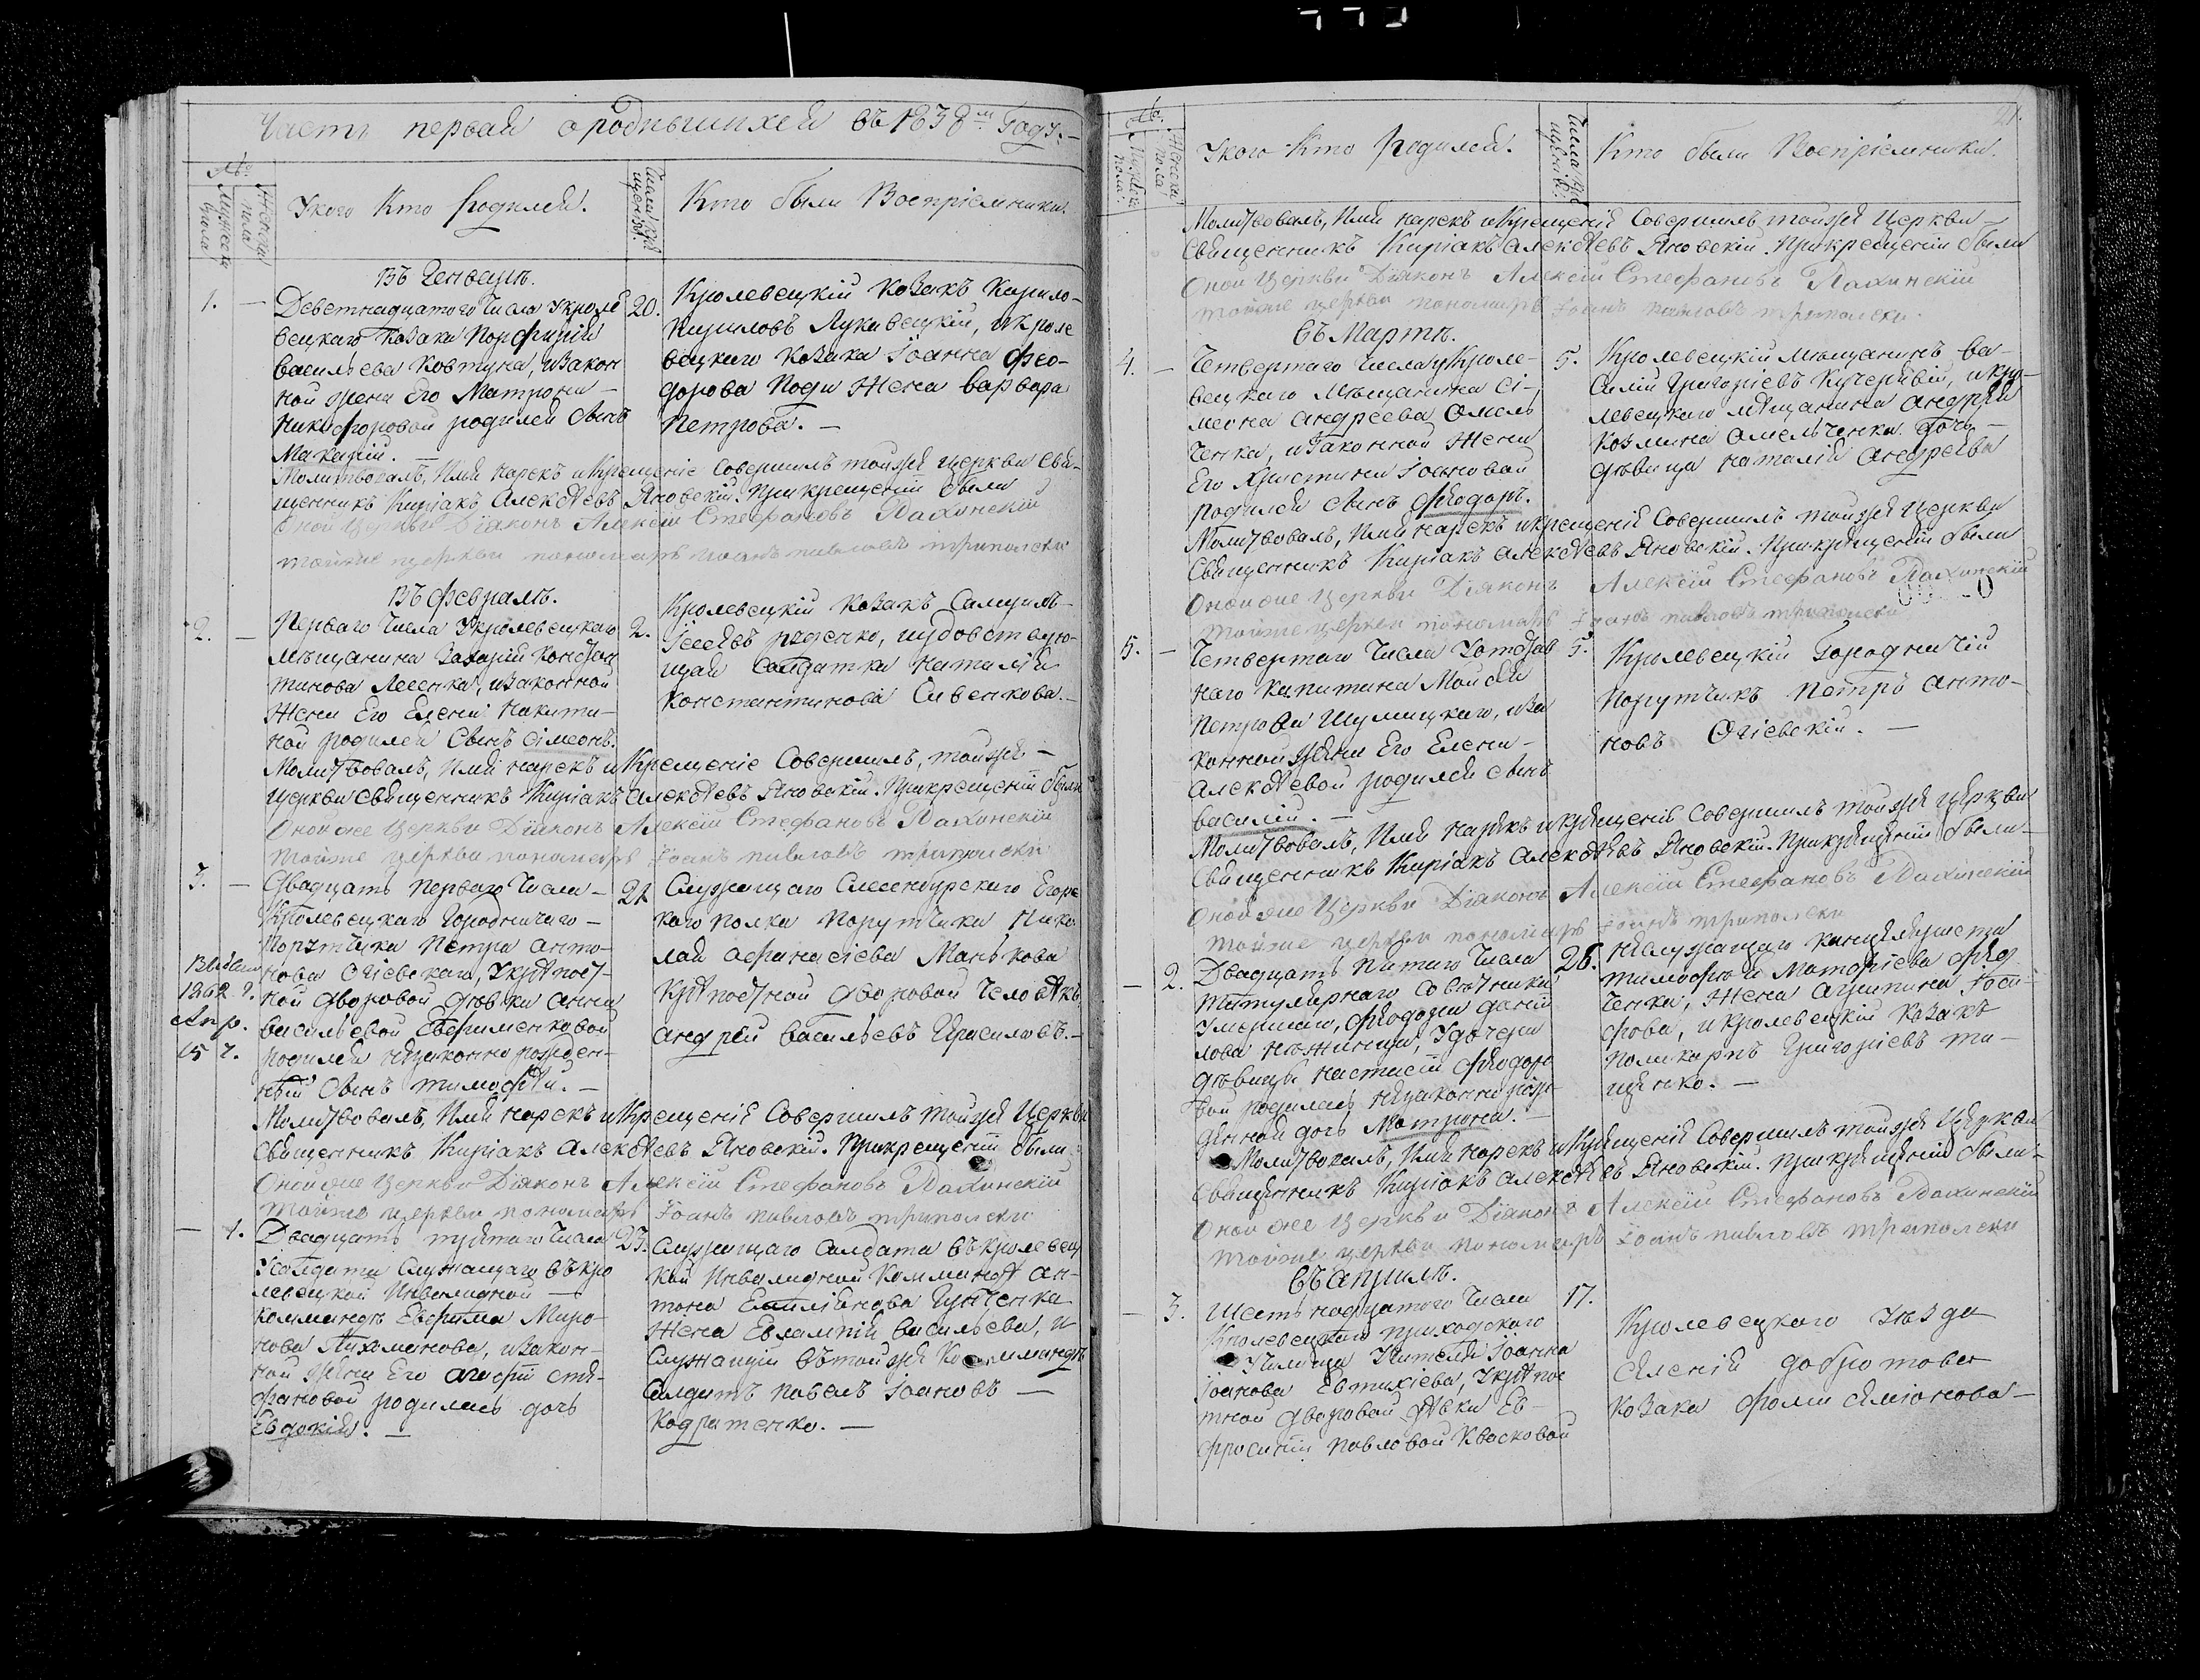 Часть первая ородившихся въ 1838м Году.
№.
Мужеска пола
Женска пола
Укого Кто родился.
Кто были Воспріемники.
Въ Генварѣ.
1. — Деветнадцатого Числа Укроле
вецкаго Козака Порфирія
васильева Ковтуна, изакон
ной жены Его Матроны
Никифоровой родился сынъ
Макарій. —
20. Кролевецкій Козакъ Кирило
Кириловъ Луковецкій, икроле
вецкаго Козака Іоанна фео-
дорова Жена варвара
Петрова. —
Молитвовалъ, Имя нарекъ и Крещеніе Совершилъ тойжя церкви Свя-
щенникъ Киріакъ Алексѣевъ Яновскій. Прикрещеніи были
Оной Церкви Діяконъ Алексій Стефановъ
тойже церкви пономаръ иоанъ павловъ триполски
Въ февралѣ.
2. — Перваго Числа Укролевецкаго
Мѣщанина Захарія Констан
тинова Лесенка, изаконной
Жены Его Елены Никити-
ной родился Сынъ Сімеонъ.
2. Кролевецкій Козакъ Самуилъ
Солдатка Наталія
Константинова Сивенкова. —
Молитвовалъ, Имя нарекъ и Крещеніе Совершилъ, тойжя —
церкви Священникъ Киріакъ Алексѣевъ Яновскій. Прикрещеніи были
Оной же Церкви Діяконъ Алексій Стефановъ
тойже церкви пономаръ Іоанъ павловъ триполски
3. — Двадцать перваго Числа —
Кролевецкаго Городничаго —
Порутчика Петра анто-
нова Огіевскаго, Укрѣпост-
ной дворовой дѣвки анны
васильевой Ефименковой
родился незаконно рожден-
ный Сынъ тимофѣй. —
1862 г.
Апр.
15 г.
21 Служащаго
каго полка порутчика Нико
лая афанасіева Манькова
Крѣпостной дворовой Человѣкъ
андрей васильевъ —
Молитвовалъ, Имя нарекъ и Крещеніе Совершилъ тойжя Церкви
Священникъ Киріакъ Алексѣевъ Яновскій. Прикрещеніи были
Оной же Церкви Діяконъ Алексій Стефановъ
тойже церкви пономаръ Іоанъ павловъ триполски
— 1. Двадцать третяго Числа
Усолдата Служащаго въкро
левецкой Инвалидной —
Коммандѣ Евфима Миро-
нова Пихманова, изакон-
ной жены Его агафіи сте-
фановой родилась дочь
Евдокія. —
23. Служащаго Салдата въкролевец
кой Инвалидной Коммандѣ ан-
тона Емиліанова Гунченка
Жена Евлампія васильева, и
Служащій вътойжя Коммандѣ
Салдатъ павелъ Іоановъ —
Кодратенко. —
№.
Мужеска пола
Женска пола
Укого Кто родился.
Кто были Воспріемники.
21.
Молитвовалъ, Имя нарекъ и Крещенія Совершилъ тойжя Церкви —
Священникъ Киріакъ алексѣевъ Яновскій. Прикрещеніи были
Оной Церкви Діяконъ Алексій Стефановъ
тойже церкви пономаръ Іоанъ павловъ триполски.
Въ Мартѣ.
4. — Четвертаго Числа уКроле-
вецкаго Мѣщанина Сі-
меона андреева Омель
ченка, изаконной Жены
Его Христины Іоановой
родился Сынъ Феодоръ.
5. Кролевецкій мѣщанинъ ва-
силій Григоріевъ Кучерявій, икро-
левецкаго мѣщанина андрея
Козмина Омельченка дочь —
дѣвица наталія андреева
Молитвовалъ, Имя нарекъ и крещенія Совершилъ тойжя Церкви
Священникъ Киріакъ алексѣевъ Яновскій. Прикрещеніи были
Оной же Церкви Діяконъ Алексій Стефановъ
тойже церкви пономаръ Іоанъ павловъ триполски
5. — Четвертаго Числа Уотстав
наго капитана Моисея
Петрова Шумицкаго, иза
конной жены Его Елены —
алексѣевой родился сынъ
василій. —
5. Кролевецкій Городничій
Порутчикъ петръ анто-
новъ Огіевскій. —
Молитвовалъ, Имя нарекъ и крещенія Совершилъ тойжя церкви
Священникъ Киріакъ алексѣевъ Яновскій. Прикрещеніи были —
Оной же Церкви Діяконъ Алексій Стефановъ
тойже церкви пономаръ Іоанъ триполски
— 2. Двадцать пятаго Числа
титулярнаго Совѣтника
Умершаго, феодота дани
лова нѣжинца, Удочери
дѣвицы настасіи феодото
вой родилась незаконно рож-
денной дочь Матрона. —
26. Служащаго канцеляриста
тимофея Матфіева
ченка, Жена агрипина Іоси-
фова, икролевецкій Козакъ
поликарпъ Григоріевъ ти-
щенко. —
Молитвовалъ, Имя нарекъ и Крещенія Совершилъ тойжя Церкви
Священникъ Киріакъ алексѣевъ Яновскій. Прикрещеніи были —
Оной же Церкви Діяконъ Алексій Стефановъ
тойже церкви пономаръ Іоанъ павловъ триполски
Въ априлѣ.
— 3. Шесть надцатого Числа
Кролевецкаго приходского
Училища Учителя Іоанна
Іоанова Евтихіева, Укрѣпос
тной дворовой дѣвки Ев-
фросиніи павловой Квасковой
17. Кролевецкого Уѣзда
Селенія добротова
Козака фомы Симонова —